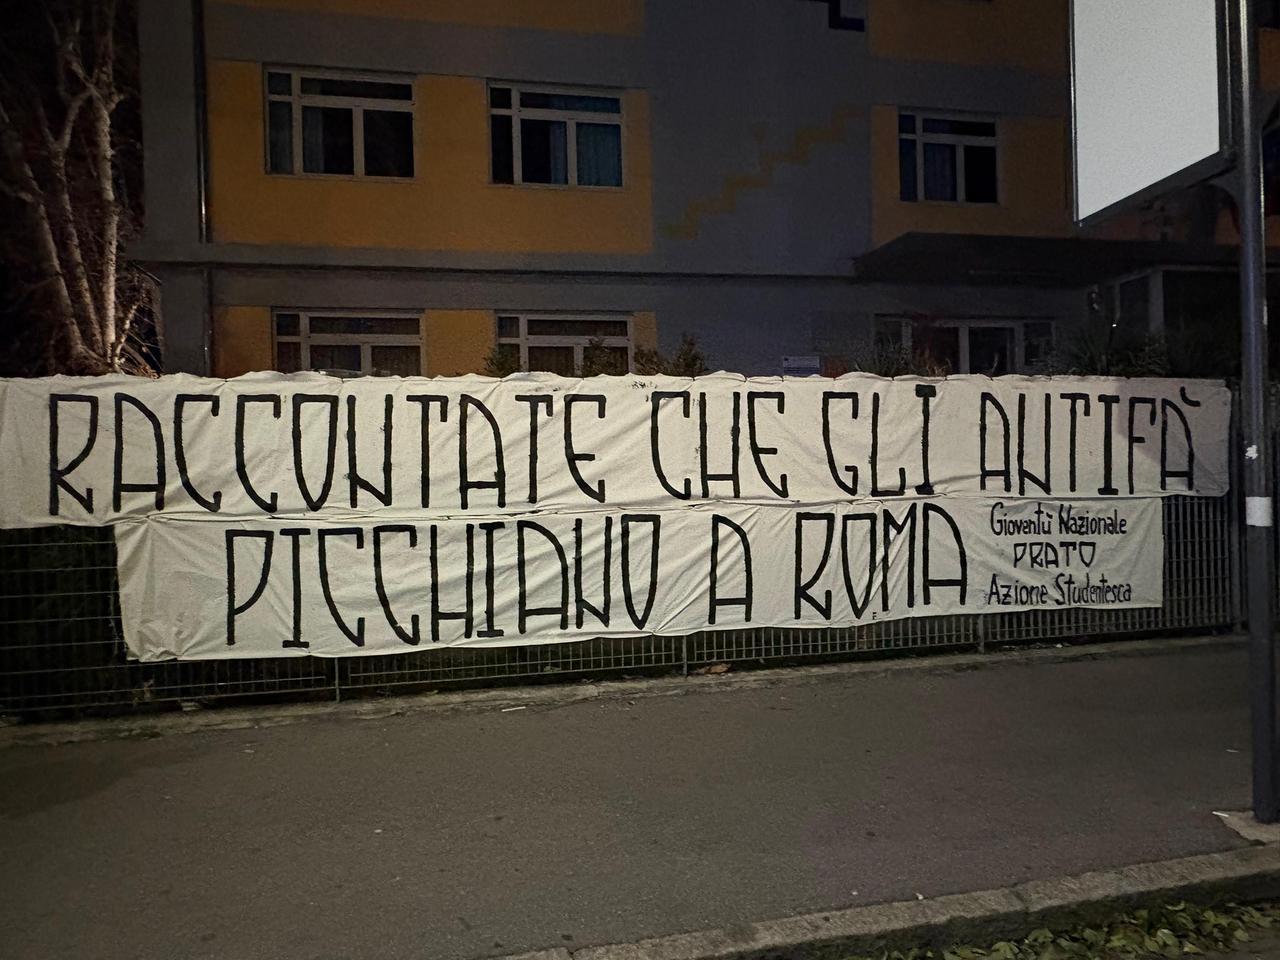 RACCONTATE CHE GLI ANTIFÀ
PICCHIANO A ROMA
Gioventù Nazionale
PRATO
Azione Studentesca